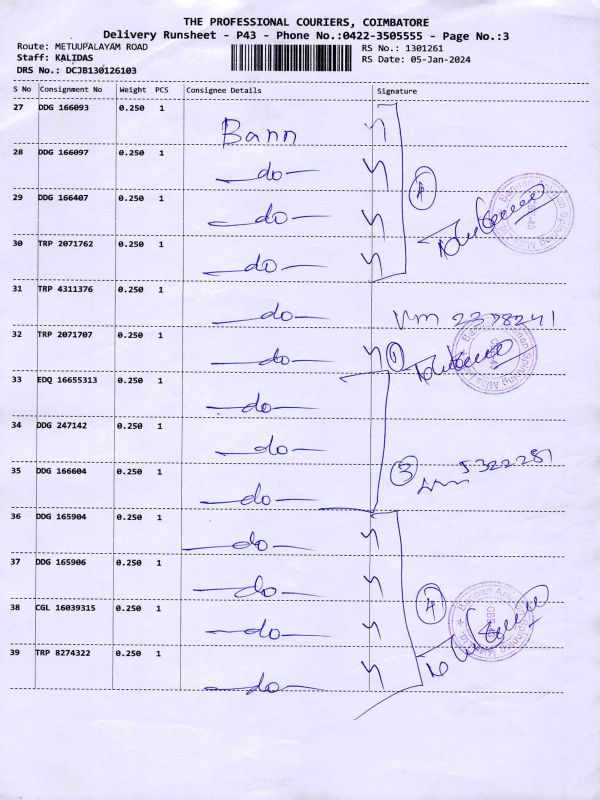 THE PROFESSIONAL COURIERS, COIMBATORE
Delivery Runsheet - P43 - Phone No.:0422-3505555 - Page No.:3
Route: METUUPALAYAM ROAD
Staff: KALIDAS
DRS No.: DCJB130126103
RS No.: 1301261
RS Date: 05-Jan-2024
S No Consignment No Weight PCS Consignee Details Signature
27 DDG 166093 0.250 1 Bann
28 DDG 166097 0.250 1 do
29 DDG 166407 0.250 1 do
30 TRP 2071762 0.250 1 do
4
31 TRP 4311376 0.250 1 do
32 TRP 2071707 0.250 1 do 1
33 EDQ 16655313 0.250 1 do
34 DDG 247142 0.250 1 do
35 DDG 166604 0.250 1 do
3 5322281
36 DDG 165904 0.250 1 do
37 DDG 165906 0.250 1 do
38 CGL 16039315 0.250 1 do
4
39 TRP 8274322 0.250 1 do